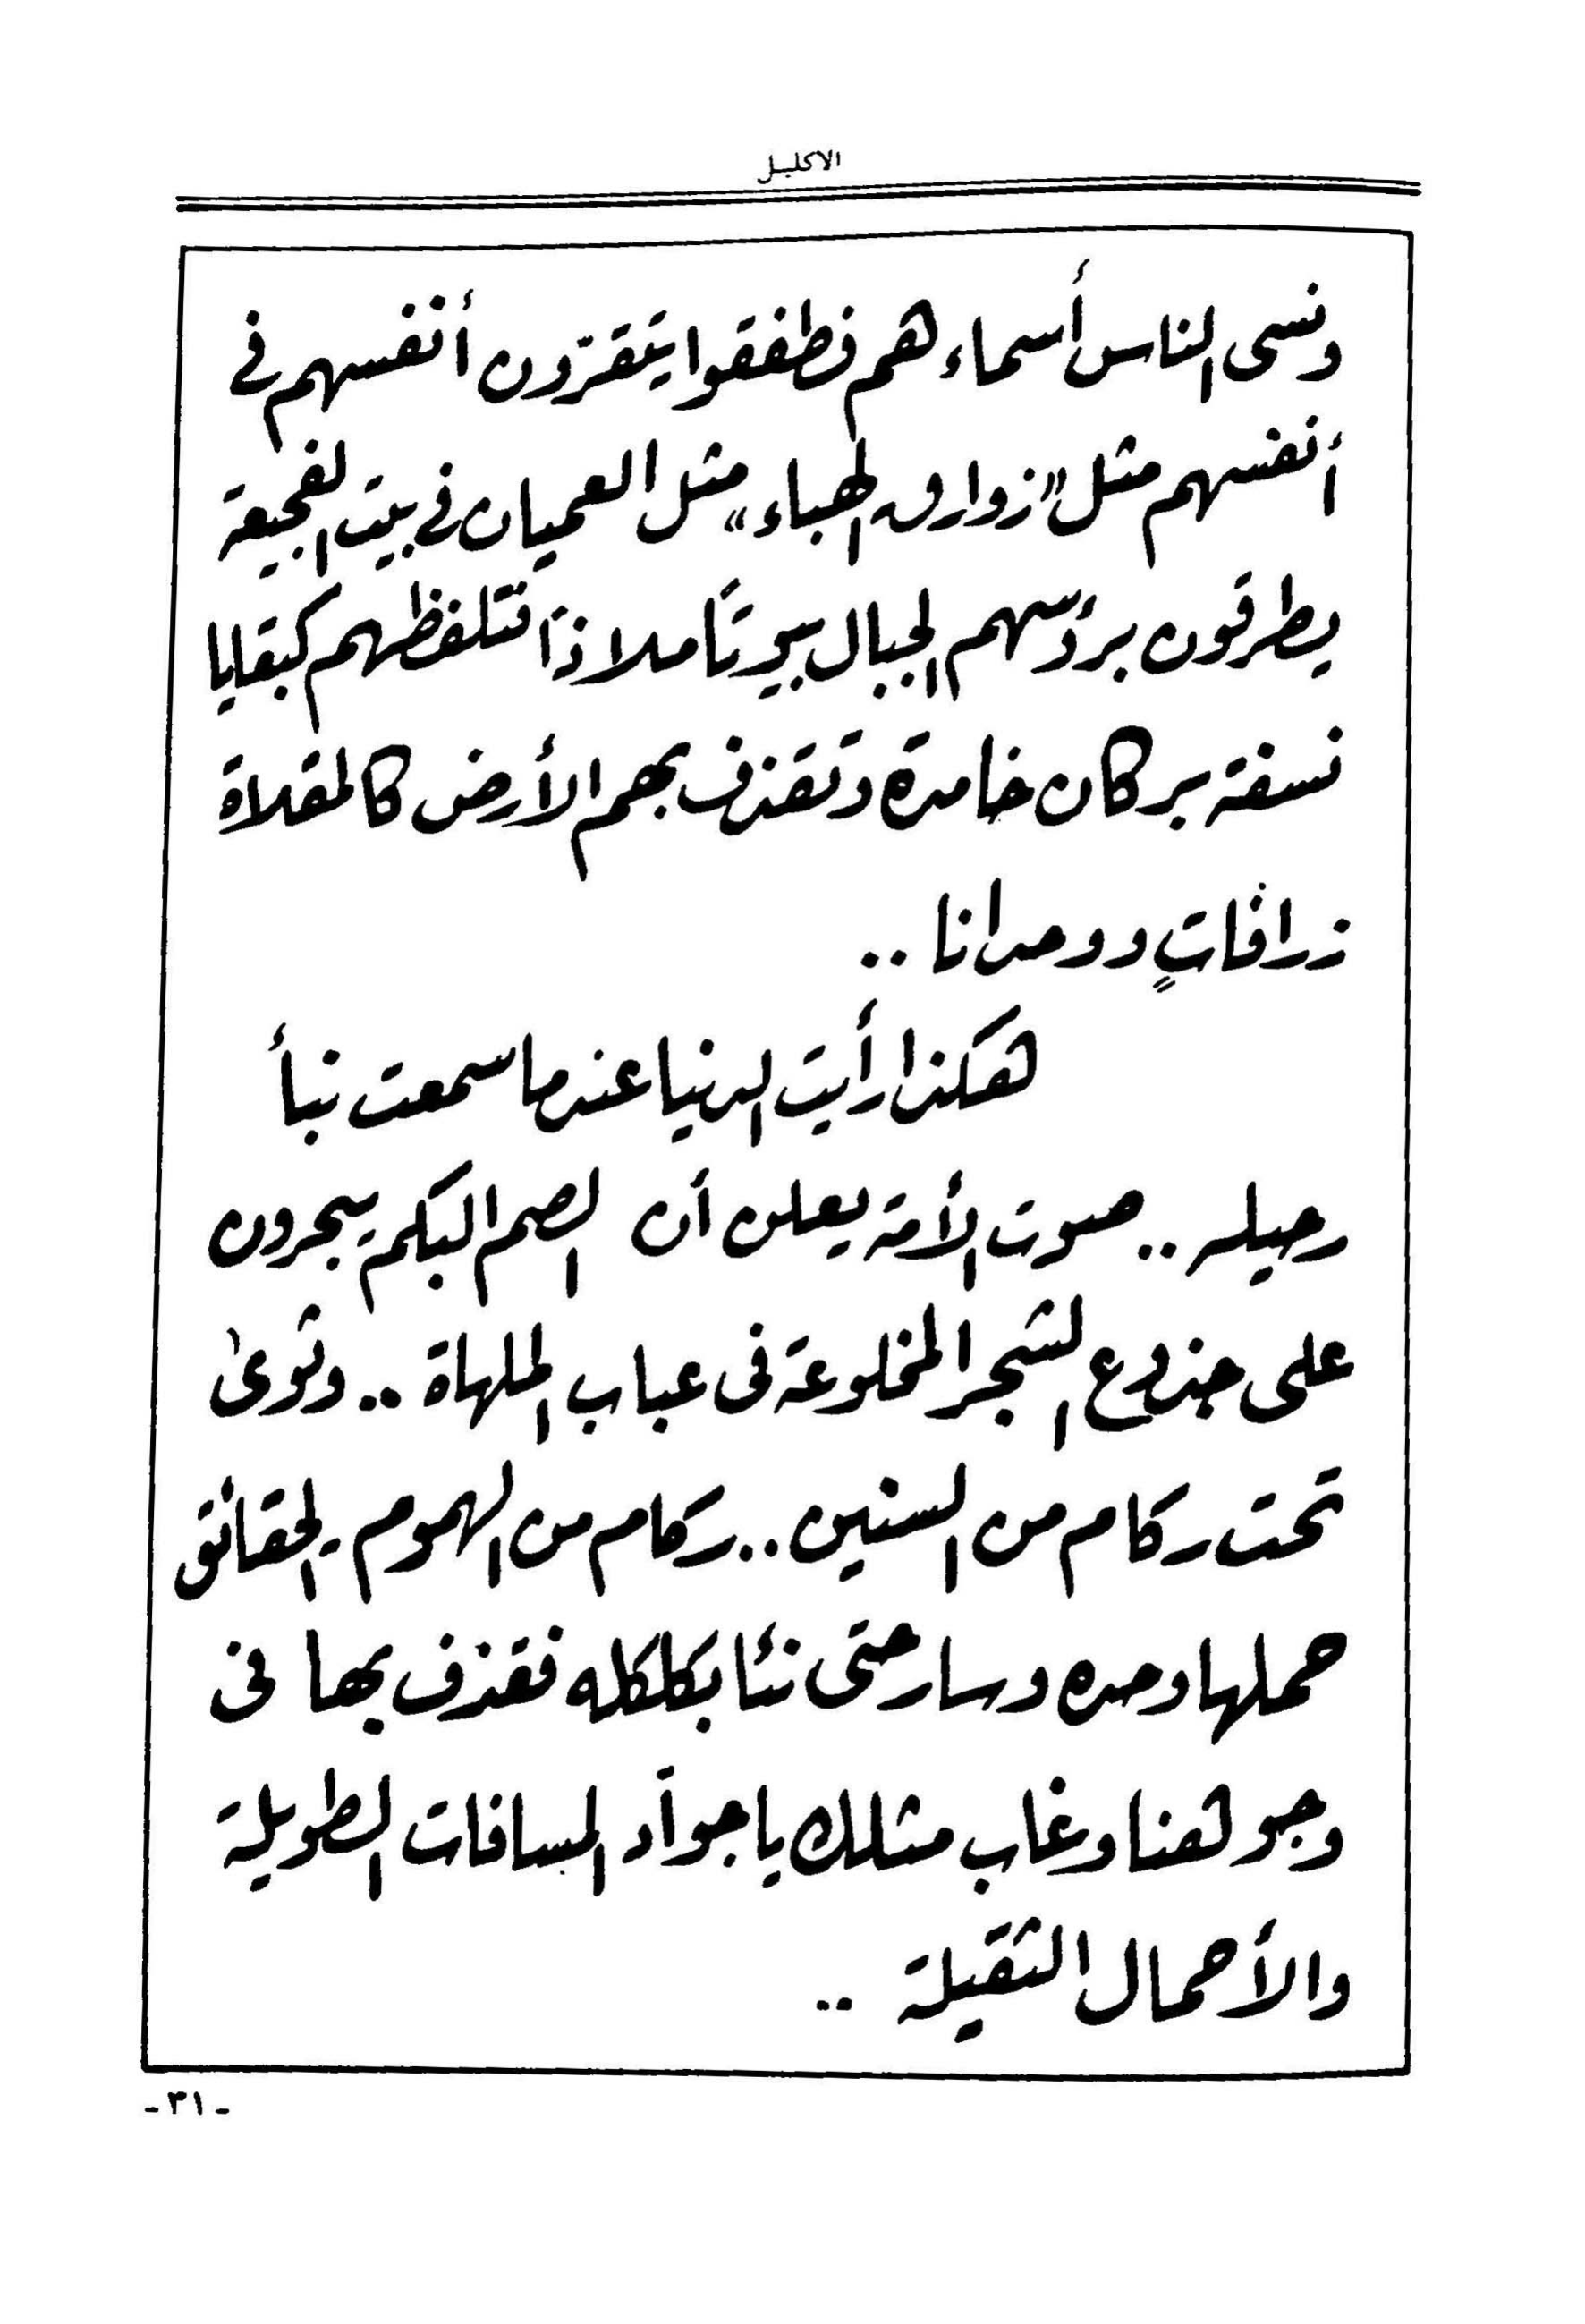 الاكليل
ونسى الناس أسماءهم فطفقوا يتقرّون أنفسهم في
أنفسهم مثل «زوارق الهباء» مثل العميان في بيت الفجيعة
يطرقون برؤسهم الجبال بيوتاً ملاذاً فتلفظهم كبقايا
نسفة بركان خامدة وتقذف بهم الأرض كالمقلاة
زرافاتٍ ووحدانا ..
هكذا رأيت الدنيا عندما سمعت نبأ
رحيله .. صوت الأمة يعلن أن الصم البكم يبحرون
على جذوع الشجر المخلوعة فى عباب الملهاة .. وثوىٰ
تحت ركام من السنين .. ركام من الهموم - الحقائق
حملها وحده وسار حتى نئا بكلكله فقذف بها فى
وجوهنا وغاب مثلك يا جواد المسافات الطويلة
والأحمال الثقيلة ..
- ٣١ -